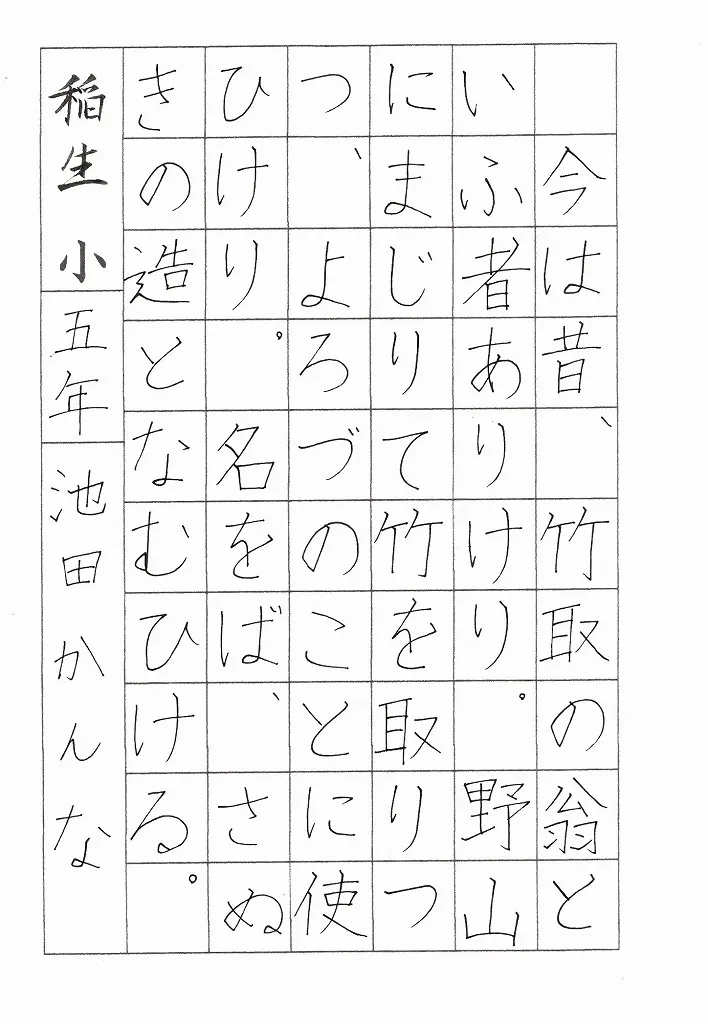 今は昔、竹取の翁と
いふ者ありけり。野山
にまじりて竹を取りつ
つ、よろづのことに使
ひけり。名をば、さぬ
きの造となむひける。
稲生小 五年 池田かんな